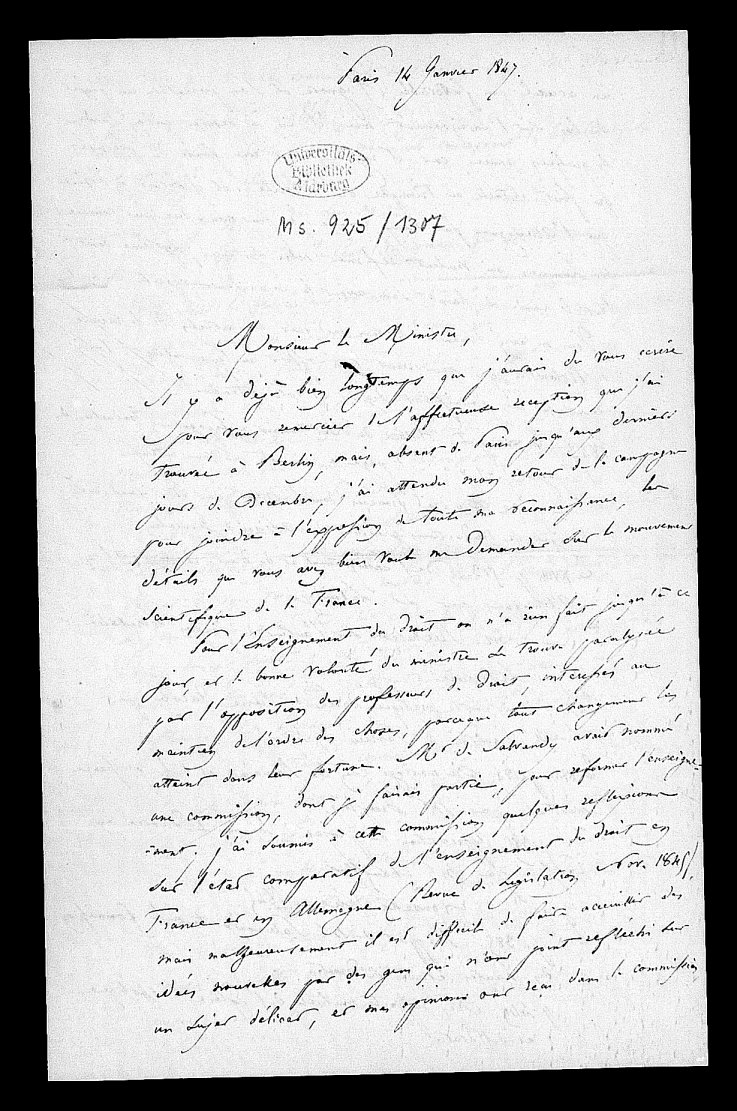 Paris 14 Janvier 1847.
Universitäts-
Bibliothek
Marburg
Ms. 925/1307
Monsieur le Ministre,
Il y a déjà bien longtemps que j'aurais du vous écrire
pour vous remercier de l'affectueuse reception que j'ai
trouvée à Berlin, mais, absent de Paris jusqu'aux derniers
jours de Decembre, j'ai attendu mon retour de la campagne
pour joindre à l'expression de toute ma reconnaissance, les
détails que vous avez bien voulu me demander sur le mouvement
scientifique de la France.
Pour l'Enseignement du droit on n'a rien fait jusqu'à ce
jour, et la bonne volonté du ministre se trouve paralysée
par l'opposition des professeurs de droit, interessés au
maintien de l'ordre des choses, parceque tout changement les
atteint dans leur fortune. Mr de Salvandy avait nommé
une commission, dont je faisais partie, pour reformer l'enseigne-
-ment. j'ai soumis à cette commission quelques reflexions
sur l'état comparatif de l'enseignement du droit en
France et en Allemagne (Revue de Legislation Nov. 1845)
mais malheureusement il est difficile de faire accueillir des
idées nouvelles par des gens qui n'ont point reflechi sur
un sujet délicat, et mes opinions ont reçu dans la commission